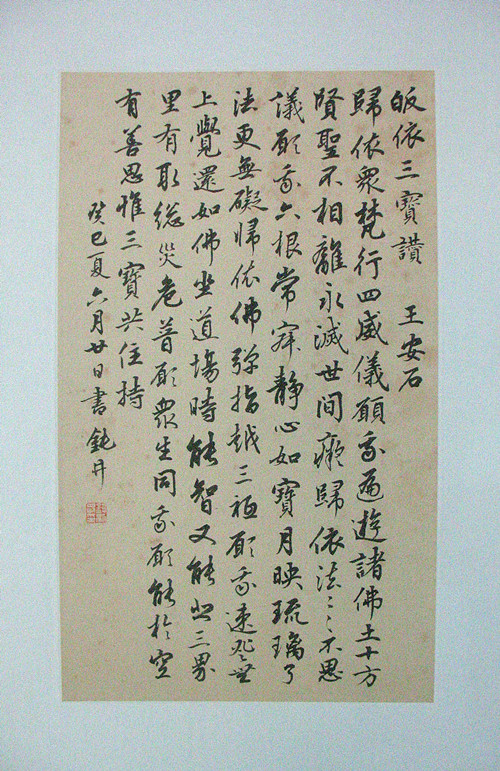 皈依三寶讚 王安石
歸依眾梵行四威儀願我遍遊諸佛土十方
賢聖不相離永滅世間癡歸依法〻不思
議願我六根常寂靜心如寶月映琉璃了
法更無礙歸依佛彈指越三祇願我速登無
上覺還如佛坐道場時能智又能悲三界
里有取總災危普願眾生同我願能於空
有善思惟三寶共住持
癸巳夏六月廿日書 鈍